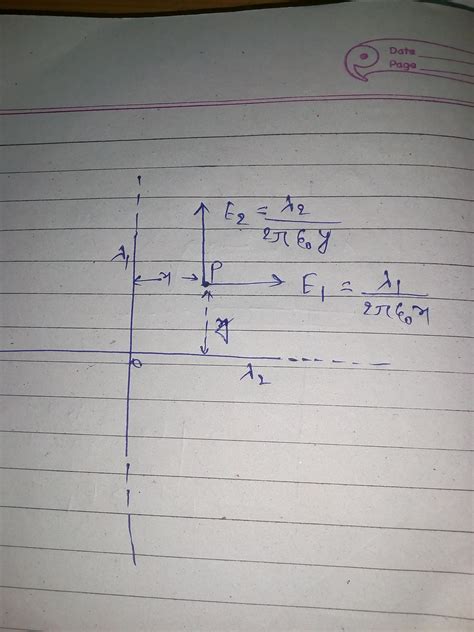 Date
Page
E₂ = λ₂/2πϵ₀y
λ₁
x
P
E₁ = λ₁/2πϵ₀x
y
O
λ₂